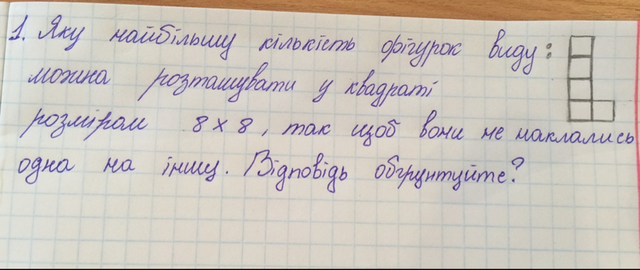 1. Яку найбільшу кількість фігурок виду:
можна розташувати у квадраті
розміром 8×8, так щоб вони не наклались
одна на іншу. Відповідь обгрунтуйте?